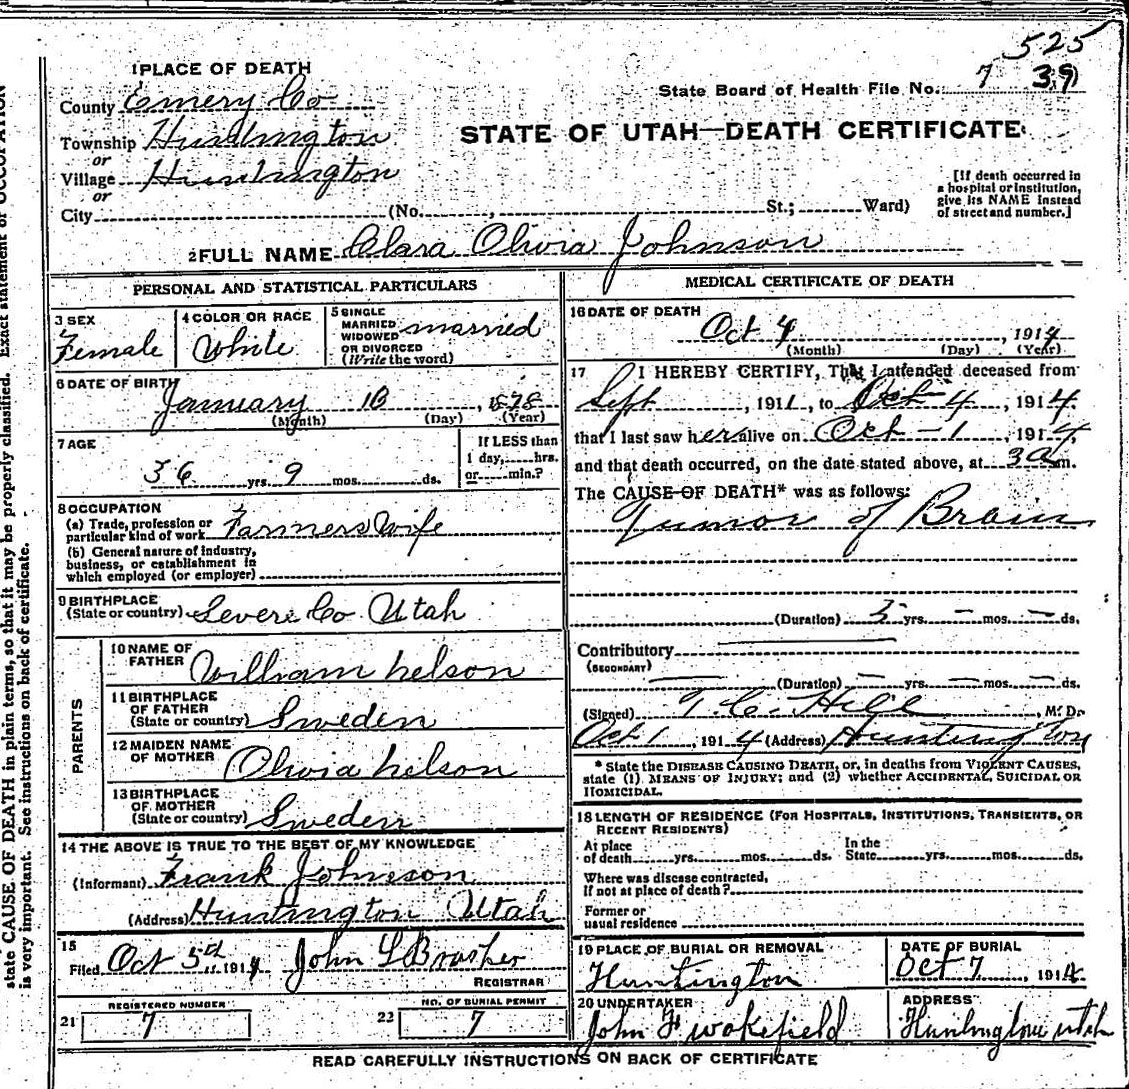 525
1 PLACE OF DEATH
State Board of Health File No. 7 39
County Emery Co
Township Huntington
or
Village Huntington
or
City (No. , St.; Ward)
STATE OF UTAH—DEATH CERTIFICATE
[If death occurred in
a hospital or institution,
give its NAME instead
of street and number.]
2 FULL NAME Clara Olivia Johnson
PERSONAL AND STATISTICAL PARTICULARS
3 SEX
Female
4 COLOR OR RACE
White
5 SINGLE
MARRIED
WIDOWED
OR DIVORCED
(Write the word)
married
6 DATE OF BIRTH
January 10, 1878
(Month) (Day) (Year)
7 AGE
36 yrs. 9 mos. ds.
If LESS than
1 day, hrs.
or min.?
8 OCCUPATION
(a) Trade, profession or
particular kind of work Farmers Wife
(b) General nature of industry,
business, or establishment in
which employed (or employer)
9 BIRTHPLACE
(State or country) Severe Co Utah
PARENTS
10 NAME OF
FATHER William nelson
11 BIRTHPLACE
OF FATHER
(State or country) Sweden
12 MAIDEN NAME
OF MOTHER Olivia nelson
13 BIRTHPLACE
OF MOTHER
(State or country) Sweden
14 THE ABOVE IS TRUE TO THE BEST OF MY KNOWLEDGE
(Informant) Frank Johnson
(Address) Huntington Utah
15
Filed Oct 5th, 1914 John L Brasher
REGISTRAR
REGISTERED NUMBER
21 7
NO. OF BURIAL PERMIT
22 7
MEDICAL CERTIFICATE OF DEATH
16 DATE OF DEATH
Oct 4, 1914
(Month) (Day) (Year)
17 I HEREBY CERTIFY, That I attended deceased from
Sept, 1911, to Oct 4, 1914.
that I last saw her alive on Oct - 1, 1914,
and that death occurred, on the date stated above, at 3 a m.
The CAUSE OF DEATH* was as follows:
Tumor of Brain
(Duration) 3 yrs. — mos. — ds.
Contributory
(SECONDARY)
(Duration) — yrs. — mos. — ds.
(Signed) T. C. Hill, M. D.
Oct 1, 1914 (Address) Huntington
* State the DISEASE CAUSING DEATH, or, in deaths from VIOLENT CAUSES,
state (1) MEANS OF INJURY; and (2) whether ACCIDENTAL, SUICIDAL OR
HOMICIDAL.
18 LENGTH OF RESIDENCE (FOR HOSPITALS, INSTITUTIONS, TRANSIENTS, OR
RECENT RESIDENTS)
At place
of death yrs. mos. ds.
In the
State yrs. mos. ds.
Where was disease contracted,
if not at place of death?
Former or
usual residence
19 PLACE OF BURIAL OR REMOVAL
Huntington
DATE OF BURIAL
Oct 7, 1914
20 UNDERTAKER
John F wakefield
ADDRESS
Huntington utah
READ CAREFULLY INSTRUCTIONS ON BACK OF CERTIFICATE
state CAUSE OF DEATH in plain terms, so that it may be properly classified. Exact statement of OCCUPATION
is very important. See instructions on back of certificate.